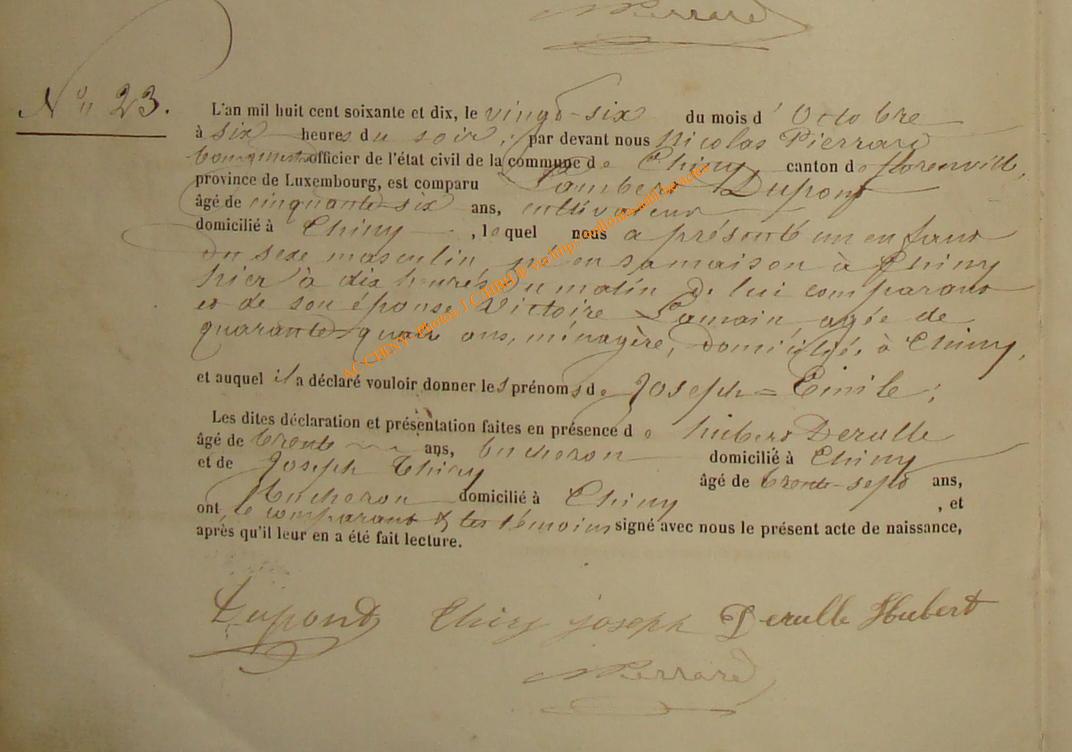 NPierrard
No 23.
L'an mil huit cent soixante et dix, le vingt-six du mois d'Octobre
à six heures du soir, par devant nous Nicolas Pierrard
bourgmestre officier de l'état civil de la commune de Chiny, canton de florenville,
province de Luxembourg, est comparu Lambert Dupont
âgé de cinquante-six ans, cultivateur
domicilié à Chiny, lequel nous a présenté un enfant
du sexe masculin né en sa maison à Chiny
hier à dix heures du matin de lui comparant
et de son épouse Victoire Lamain agée de
quarante-quatre ans, ménagère, domiciliés à Chiny,
et auquel il a déclaré vouloir donner les prénoms de Joseph=Emile;
Les dites déclaration et présentation faites en présence de hubert Derulle
âgé de trente ans, bucheron domicilié à Chiny
et de Joseph Chiny âgé de trente-sept ans,
Bucheron domicilié à Chiny, et
ont, le comparant & les témoins signé avec nous le présent acte de naissance,
après qu'il leur en a été fait lecture.
Dupond Chiny joseph Derulle Hubert
NPierrard